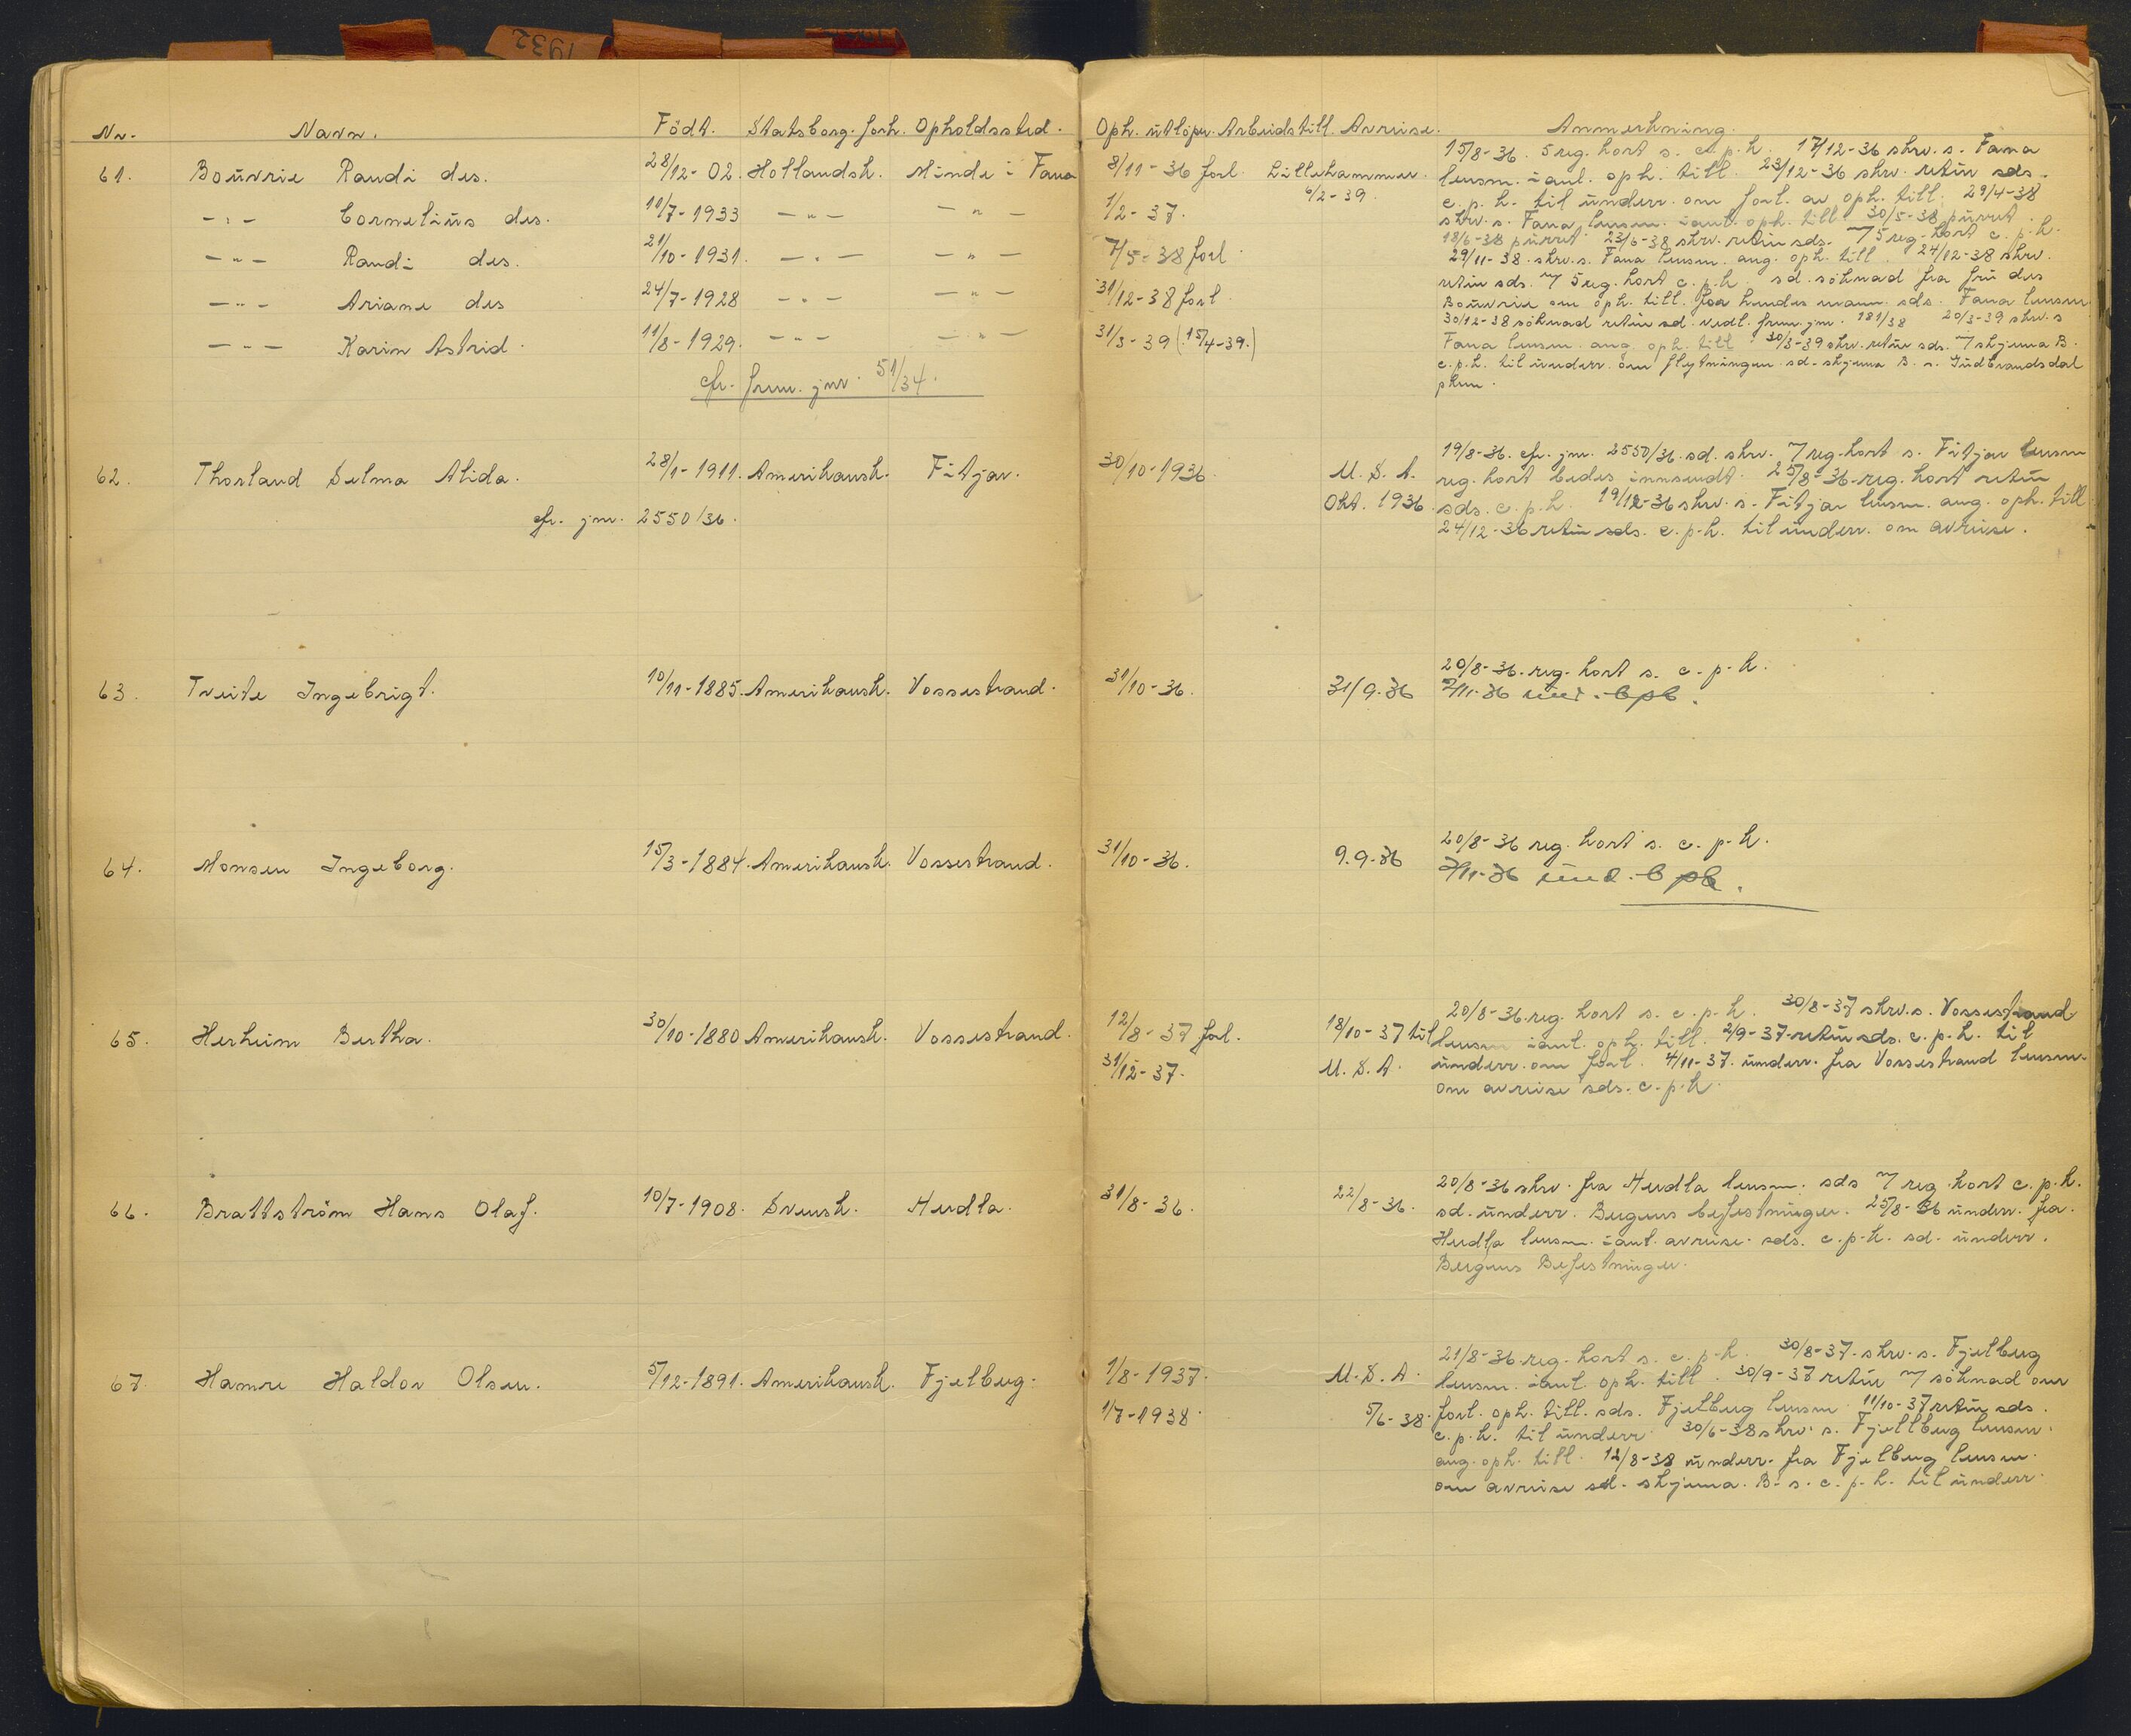 1932
Nr. Navn. Födt. Statsborg. forh. Opholdssted. Oph. utlöper. Arbeidstill. Avreise. Anmerkning.
61. Bouvrie Randi des. 28/12-02. Hollandsk. Minde i Fana 8/11-36 forl. Lillehammer. 15/8-36. 5 reg. kort s. c. p. k. 17/12-36 skrv. s. Fana
6/2-39. lensm. ianl. oph. till. 23/12-36 skrv. retur sds.
-"- Cornelius des. 11/7-1933 -"- -"- 1/2-37. c. p. k. til underr. om forl. av oph. till. 29/4-38
skrv. s. Fana lensm. ianl. oph. till. 30/5-38 purret.
-"- Randi des. 21/10-1931. -"- -"- 7/5-38 forl. 18/6-38 purret 23/6-38 skrv. retur sds. 7 5 reg. kort c. p. k.
29/11-38. skrv. s. Fana lensm. ang. oph. till. 24/12-38 skrv.
-"- Ariane des 24/7-1928 -"- -"- 31/12-38 forl. retur sds. 7 5 reg. kort c. p. k. sd. söknad fra fru des
Bouvrie om oph. till. for hendes mann sds. Fana lensm.
-"- Karin Astrid. 11/8-1929. -"- -"- 31/3-39 (15/4-39.) 30/12-38 söknad retur sd. vedl. frem. jnr. 181/38 20/3-39 skrv. s
Fana lensm. ang. oph. till. 30/3-39 skrv. retur sds. 7 skjema B.
cfr. frem. jnr. 51/34. c. p. k. til underr. om flytningen sd. skjema B. s. Gudbrandsdal
pkm.
62. Thorland Selma Alida. 28/1-1911. Amerikansk. Fitjar. 30/10-1936. U. S. A. 19/8-36. cfr. jnr. 2550/36. sd. skrv. 7 reg. kort s. Fitjar lensm
reg. kort bedes innsendt. 25/8-36. reg. kort retur
cfr. jnr. 2550/36. Okt. 1936. sds. c. p. k. 19/12-36 skrv. s. Fitjar lensm. ang. oph. till.
24/12-36 retur sds. c. p. k. til underr. om avreise.
63. Tveite Ingebrigt. 10/11-1885. Amerikansk. Vossestrand. 31/10-36. 31/9.36 20/8-36. reg. kort s. c. p. k.
2/11-36
64. Monsen Ingeborg. 15/3-1884. Amerikansk. Vossestrand. 31/10-36. 9.9.36 20/8-36 reg. kort s. c. p. k.
2/11-36
65. Herheim Bertha. 30/10-1880 Amerikansk. Vossestrand. 12/8-37 forl. 18/10-37 til 20/8-36. reg. kort s. c. p. k. 30/8-37 skrv. s. Vossestrand
lensm ianl. oph. till. 2/9-37. retur sds. c. p. k. til
31/12-37. U. S. A. underr. om forl. 4/11-37. underr. fra Vossestrand lensm.
om avreise sds. c. p. k.
66. Brattström Hans Olaf. 10/7-1908. Svensk. Herdla. 31/8-36. 22/8-36. 20/8-36 skrv. fra Herdla lensm. sds 7 reg. kort c. p. k.
sd. underr. Bergens befestninger. 25/8-36 underr. fra
Herdla lensm. ianl. avreise. sds. c. p. k. sd. underr.
Bergens Befestninger.
67. Hamre Haldor Olsen. 5/12-1891. Amerikansk. Fjelberg. 1/8-1937. U. S. A. 21/8-36. reg. kort s. c. p. k. 30/8-37. skrv. s. Fjelberg
lensm. ianl. oph. till. 30/9-37 retur 7 söknad om
1/7-1938. 5/6-38. forl. oph. till. sds. Fjelberg lensm. 11/10-37 retur sds.
c. p. k. til underr 30/6-38 skrv. s. Fjellberg lensm.
ang. oph. till. 12/8-38 underr. fra Fjelberg lensm.
om avreise sd. skjema. B. s. c. p. k. til underr.